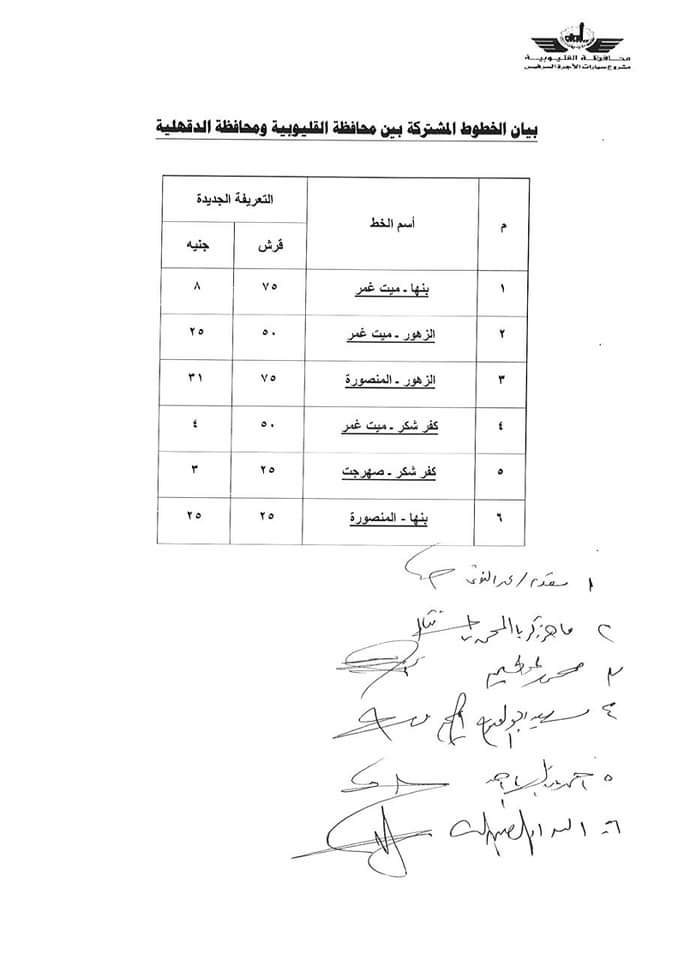 محافظة القليوبية
مشروع سيارات الأجرة السرفيس
بيان الخطوط المشتركة بين محافظة القليوبية ومحافظة الدقهلية
م أسم الخط التعريفة الجديدة
قرش جنيه
١ بنها - ميت غمر ٧٥ ٨
٢ الزهور - ميت غمر ٥٠ ٢٥
٣ الزهور - المنصورة ٧٥ ٣١
٤ كفر شكر - ميت غمر ٥٠ ٤
٥ كفر شكر - صهرجت ٢٥ ٣
٦ بنها - المنصورة ٢٥ ٢٥
١
٢
٣
٤
٥
٦